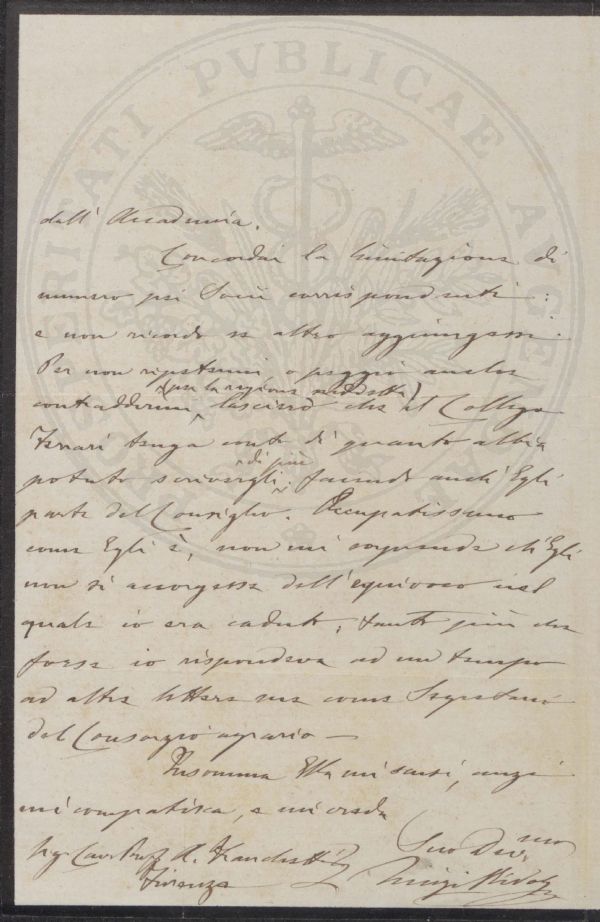 PROSPERITATI PVBLICAE AVGENDAE
dell' Accademia.
Concordai la limitazione di
numero pei Soci corrispondenti:
e non ricordo se altro aggiungessi.
Per non ripetermi, o peggio anche
(per la ragione suddetta)
contraddirmi, lascierò che il Collega
Ferrari tenga conto di quanto abbia
di più
potuto scrivergli; facendo anch'Egli
parte del Consiglio. Occupatissimo
come Egli è, non mi sorprende ch'Egli
non si accorgesse dell'equivoco nel
quale io era caduto; tanto più che
forse io rispondeva ad un tempo
ad altra lettera sua come Segretario
del Consorzio agrario —
Insomma Ella mi scusi, anzi
mi compatisca, e mi creda
Suo Dev.mo
Sig. Cav. Prof. A. Franchetti
Firenze
Luigi